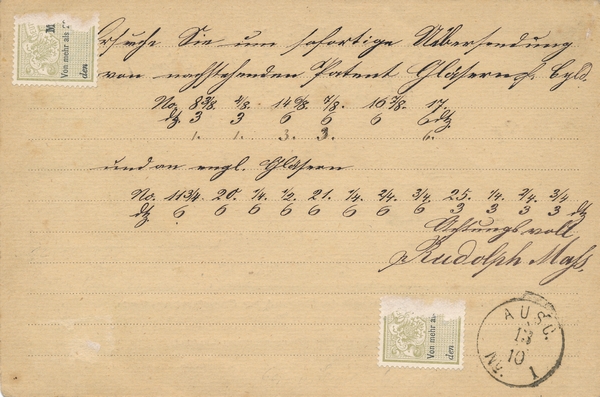 M
Von mehr als
den
Ersuche Sie um sofortige Übersendung
von nachstehenden Patent Gläsern
No. 8 3/8. 4/8. 14 6/8. 7/8. 16 7/8. 17.
dtz. 3 3 6 6 6 6 dtz.
1. 1. 3. 3. 6.
und an engl. Gläsern
No. 11 3/4 20. 1/4. 1/2. 21. 1/4. 2/4. 3/4 25. 1/4. 2/4. 3/4
dtz 6 6 6 6 6 6 6 6 3 3 3 3 dtz
Achtungsvoll
Rudolph Mass.
Von mehr a
den
AUSG.
10
1